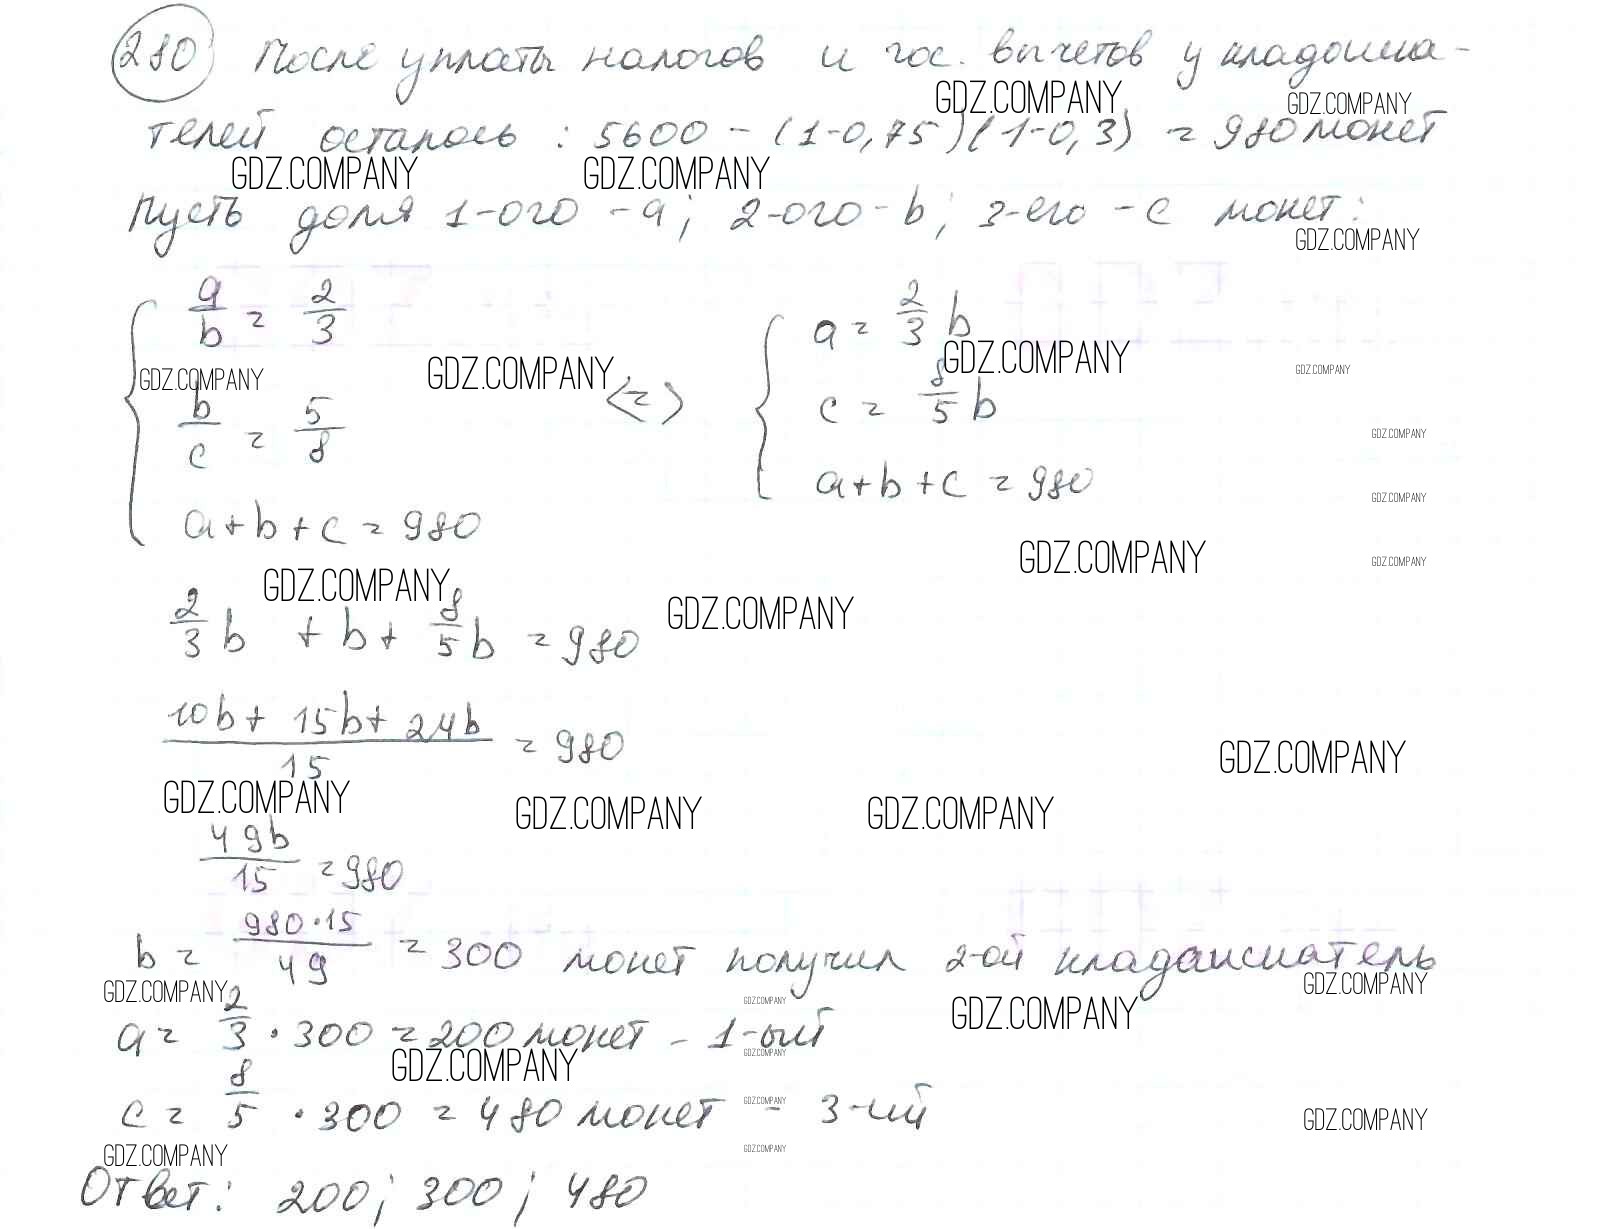 280 После уплаты налогов и гос. вычетов у кладоиска-
GDZ.COMPANY GDZ.COMPANY
телей осталось: 5600 - (1-0,75)(1-0,3) = 980 монет
GDZ.COMPANY GDZ.COMPANY
Пусть доля 1-ого - a; 2-ого - b; 3-его - c монет:
GDZ.COMPANY
a/b = 2/3
a = 2/3 b
GDZ.COMPANY GDZ.COMPANY <=> GDZ.COMPANY GDZ.COMPANY
b/c = 5/8
c = 8/5 b
GDZ.COMPANY
a+b+c = 980
a+b+c = 980
GDZ.COMPANY
GDZ.COMPANY GDZ.COMPANY
GDZ.COMPANY GDZ.COMPANY
2/3 b + b + 8/5 b = 980
(10b + 15b + 24b)/15 = 980
GDZ.COMPANY
GDZ.COMPANY GDZ.COMPANY GDZ.COMPANY
49b/15 = 980
b = 980·15/49 = 300 монет получил 2-ой кладоискатель
GDZ.COMPANY GDZ.COMPANY GDZ.COMPANY GDZ.COMPANY
a = 2/3 · 300 = 200 монет - 1-ый
GDZ.COMPANY GDZ.COMPANY
c = 8/5 · 300 = 480 монет - 3-ий
GDZ.COMPANY GDZ.COMPANY
GDZ.COMPANY GDZ.COMPANY
Ответ: 200; 300; 480